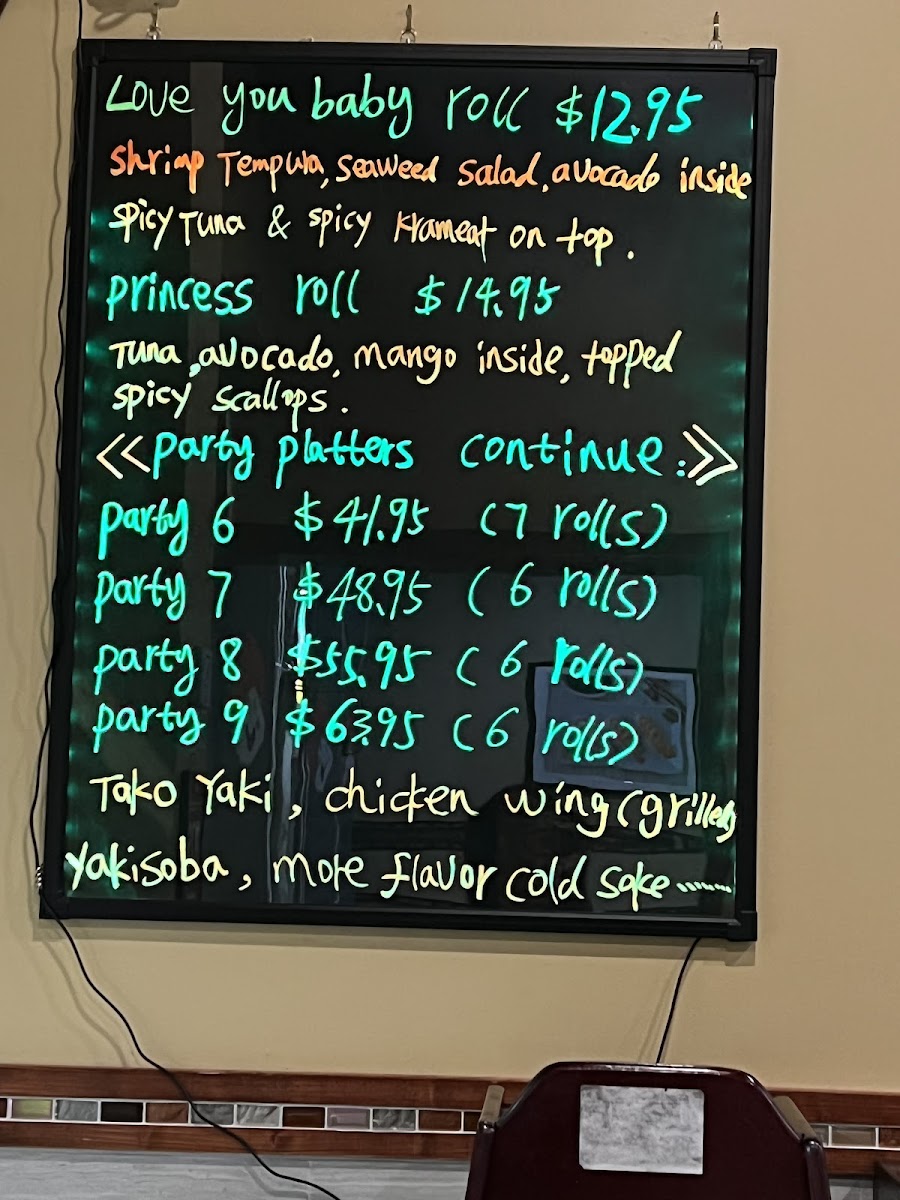 Love you baby roll $12.95
Shrimp Tempura, Seaweed Salad, avocado inside
Spicy Tuna & spicy krameat on top.
princess roll $14.95
Tuna, avocado, mango inside, topped
spicy scallops.
<<party platters continue:>>
party 6 $41.95 (7 rolls)
party 7 $48.95 (6 rolls)
party 8 $55.95 (6 rolls)
party 9 $63.95 (6 rolls)
Tako Yaki, chicken wing (grilled)
Yakisoba, more flavor cold sake ........